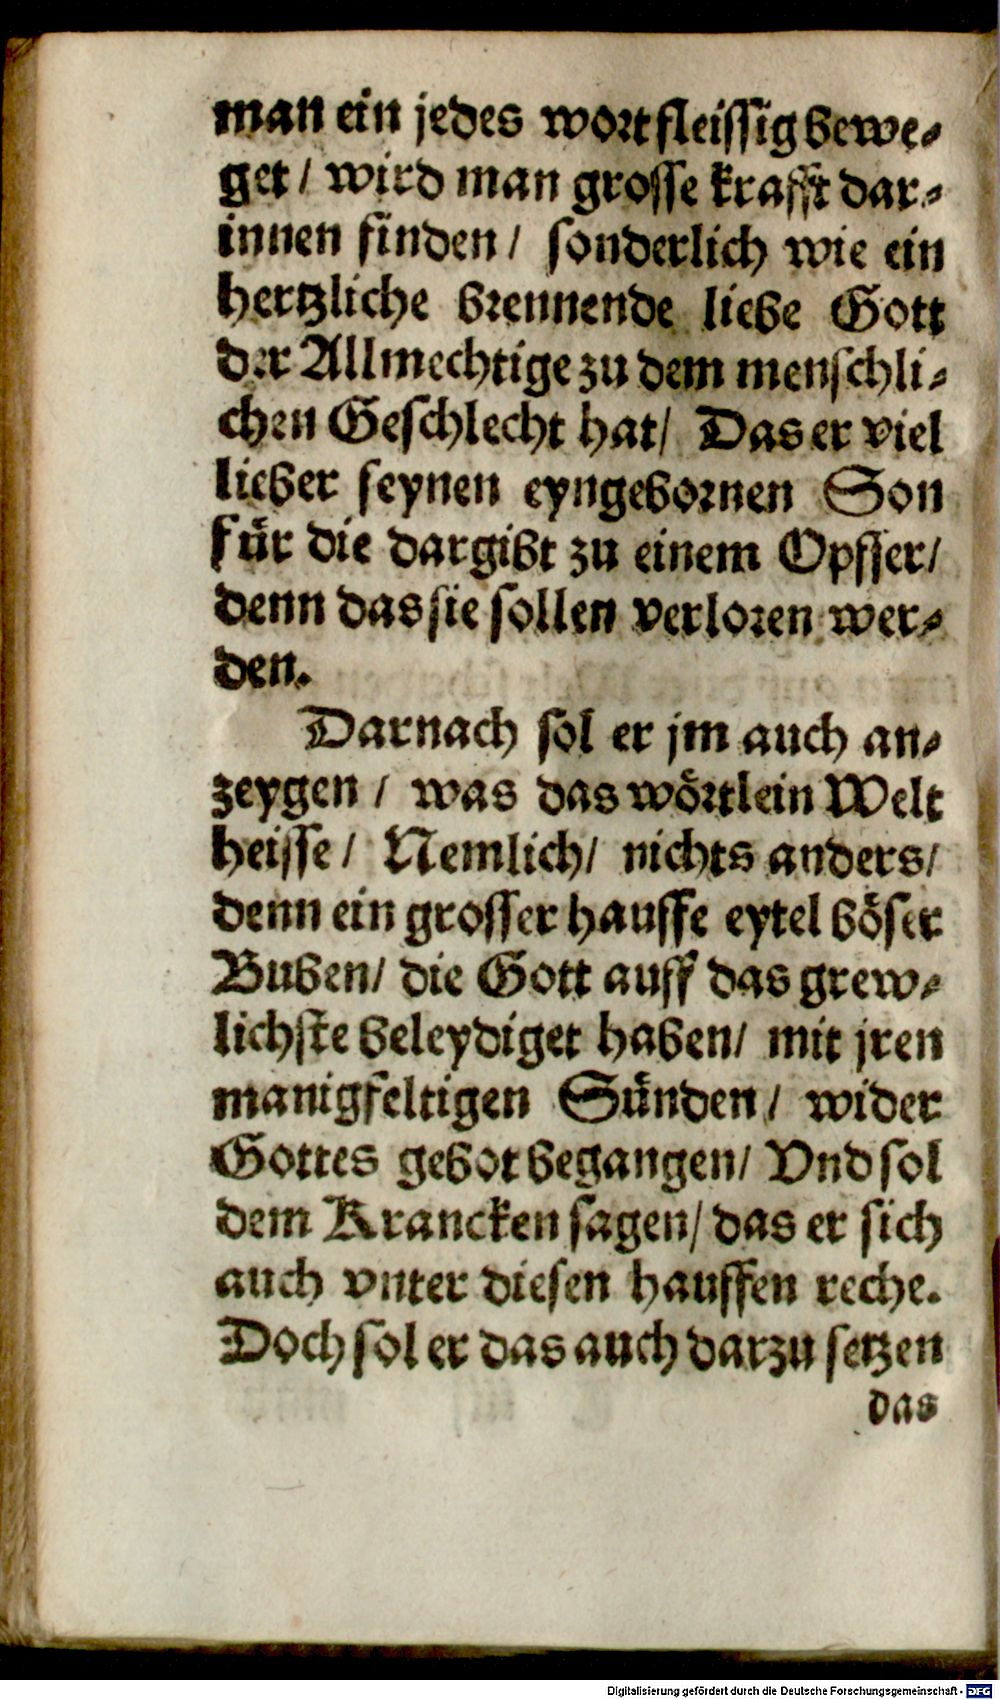 man ein jedes wort fleissig bewe-
get / wird man grosse krafft dar-
innen finden / sonderlich wie ein
hertzliche brennende liebe Gott
der Allmechtige zu dem menschli-
chen Geschlecht hat / Das er viel
lieber seynen eyngebornen Son
für die dargibt zu einem Opffer /
denn das sie sollen verloren wer-
den.
Darnach sol er jm auch an-
zeygen / was das wörtlein Welt
heisse / Nemlich / nichts anders /
denn ein grosser hauffe eytel böser
Buben / die Gott auff das grew-
lichste beleydiget haben / mit jren
manigfeltigen Sünden / wider
Gottes gebot begangen / Vnd sol
dem Krancken sagen / das er sich
auch vnter diesen hauffen reche.
Doch sol er das auch darzu setzen
das
Digitalisierung gefördert durch die Deutsche Forschungsgemeinschaft - DFG